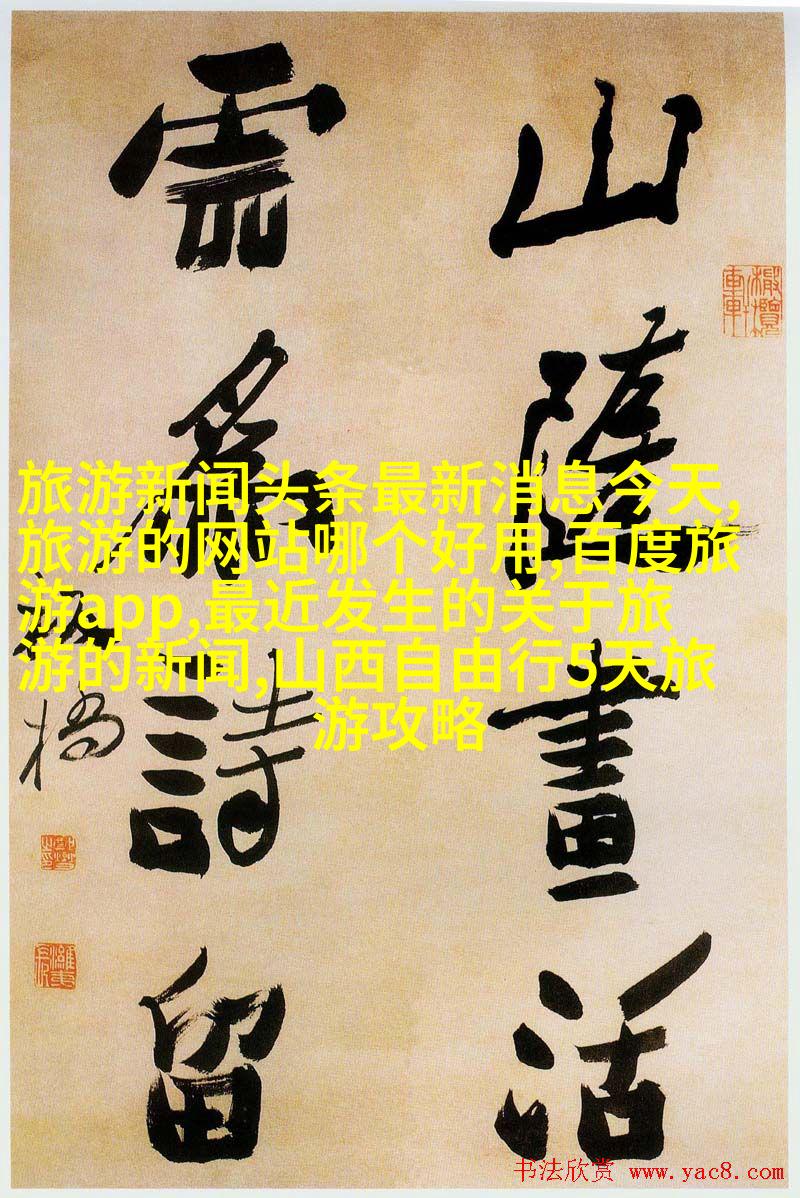 山隨畫活
雲爲詩留
板橋
旅游新闻头条最新消息今天,
旅游的网站哪个好用,百度旅
游app,最近发生的关于旅
游的新闻,山西自由行5天旅
游攻略
书法欣赏 www.yac8.com